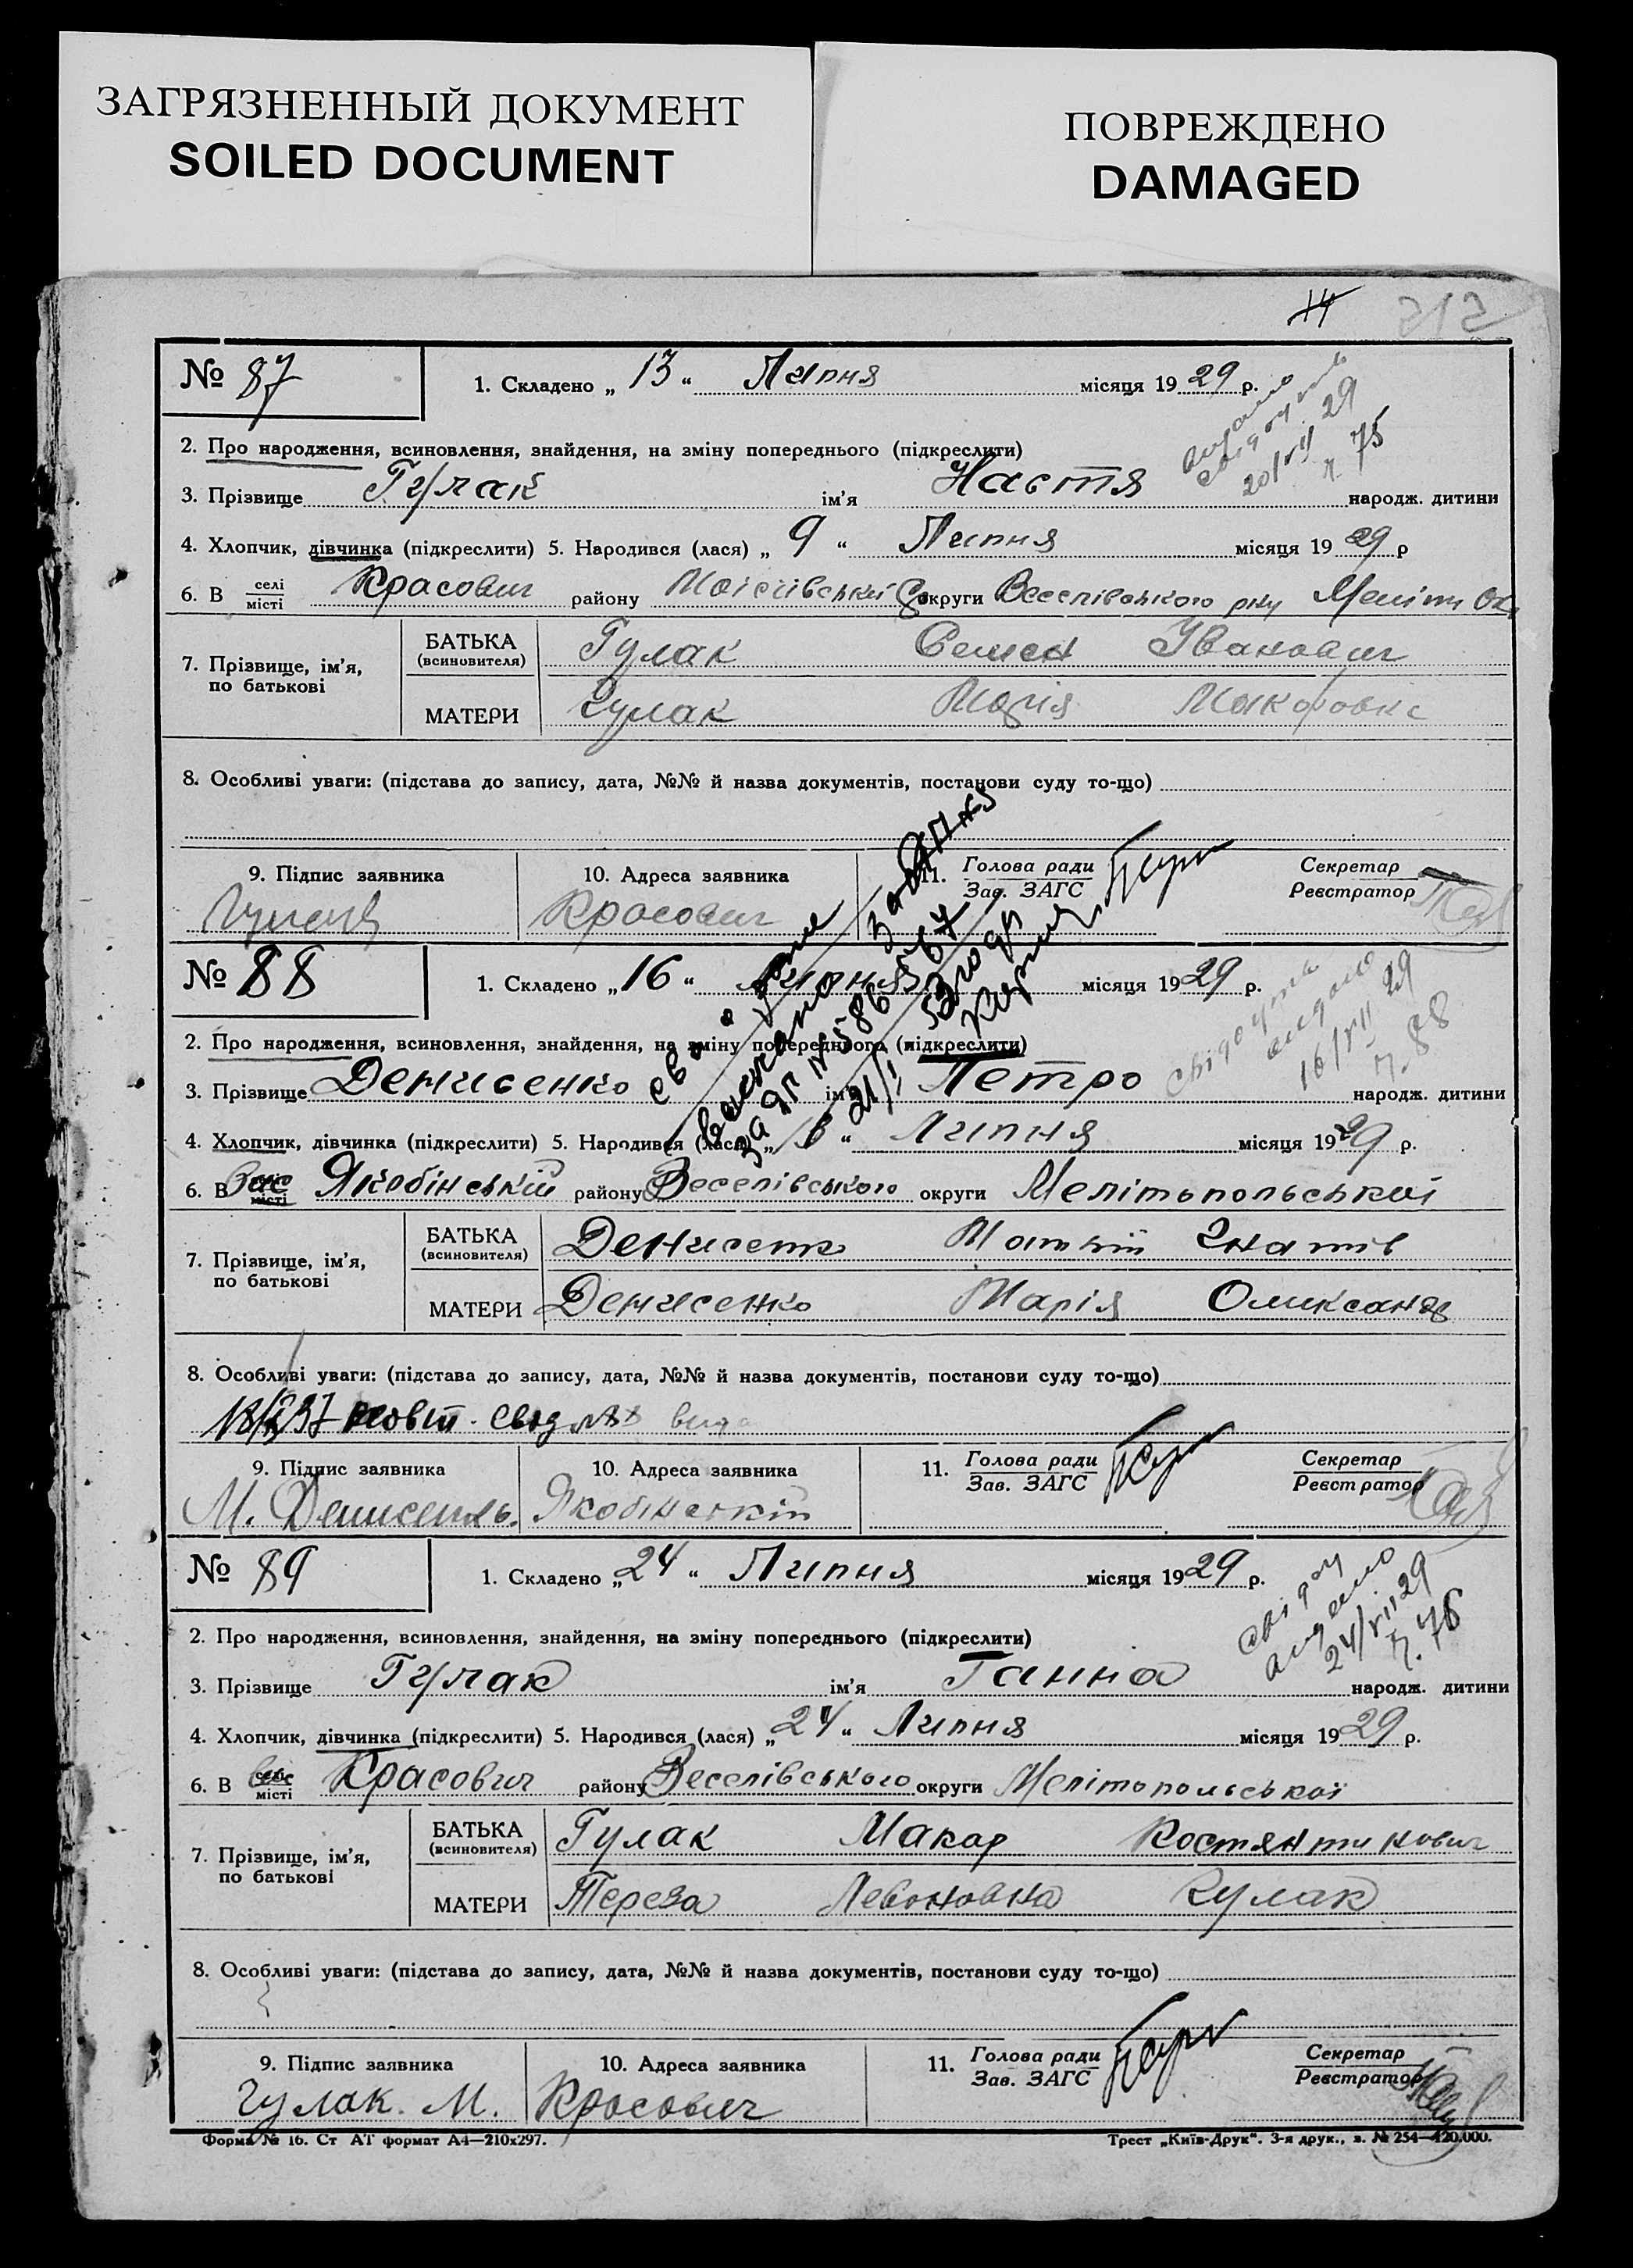 ЗАГРЯЗНЕННЫЙ ДОКУМЕНТ
SOILED DOCUMENT
ПОВРЕЖДЕНО
DAMAGED
14 212
№ 87 1. Складено „ 13 “ Липня місяця 19 29 р.
видано
20/VII 29
ч. 75
2. Про народження, всиновлення, знайдення, на зміну попереднього (підкреслити)
3. Прізвище Гулак ім’я Настя народж. дитини
4. Хлопчик, дівчинка (підкреслити) 5. Народився (лася) „ 9 “ Липня місяця 19 29 р
6. В селі місті Красович району округи Веселівського рну Меліт Окр
7. Прізвище, ім’я, по батькові
БАТЬКА (всиновителя) Гулак Семен Іванович
МАТЕРИ Гулак Марія Макаровна
8. Особливі уваги: (підстава до запису, дата, №№ й назва документів, постанови суду то-що)
9. Підпис заявника 10. Адреса заявника 11. Голова ради Зав. ЗАГС Секретар Реєстратор
Гулак Красович
№ 88 1. Складено „ 16 “ Липня місяця 19 29 р.
видано
16/VII 29
ч. 88
2. Про народження, всиновлення, знайдення, на зміну попереднього (підкреслити)
3. Прізвище Денисенко ім’я Петро народж. дитини
4. Хлопчик, дівчинка (підкреслити) 5. Народився (лася) „ 6 “ Липня місяця 19 29 р.
6. В місті Якобінській району Веселівського округи Мелітопольської
7. Прізвище, ім’я, по батькові
БАТЬКА (всиновителя) Денисенко Матвій Гнатів
МАТЕРИ Денисенко Марія Олександ
8. Особливі уваги: (підстава до запису, дата, №№ й назва документів, постанови суду то-що)
9. Підпис заявника 10. Адреса заявника 11. Голова ради Зав. ЗАГС Секретар Реєстратор
М. Денисенко Якобінській
№ 89 1. Складено „ 24 “ Липня місяця 19 29 р.
свідоц
видано
24/VII 29
ч. 76
2. Про народження, всиновлення, знайдення, на зміну попереднього (підкреслити)
3. Прізвище Гулак ім’я Ганна народж. дитини
4. Хлопчик, дівчинка (підкреслити) 5. Народився (лася) „ 24 “ Липня місяця 19 29 р.
6. В селі місті Красович району Веселівського округи Мелітопольської
7. Прізвище, ім’я, по батькові
БАТЬКА (всиновителя) Гулак Макар Костянтинович
МАТЕРИ Тереза Левоновна Гулак
8. Особливі уваги: (підстава до запису, дата, №№ й назва документів, постанови суду то-що)
9. Підпис заявника 10. Адреса заявника 11. Голова ради Зав. ЗАГС Секретар Реєстратор
Гулак. М. Красович
Форма № 16. Ст АТ формат А4—210х297. Трест „Київ-Друк“. 3-я друк., з. № 254—120.000.